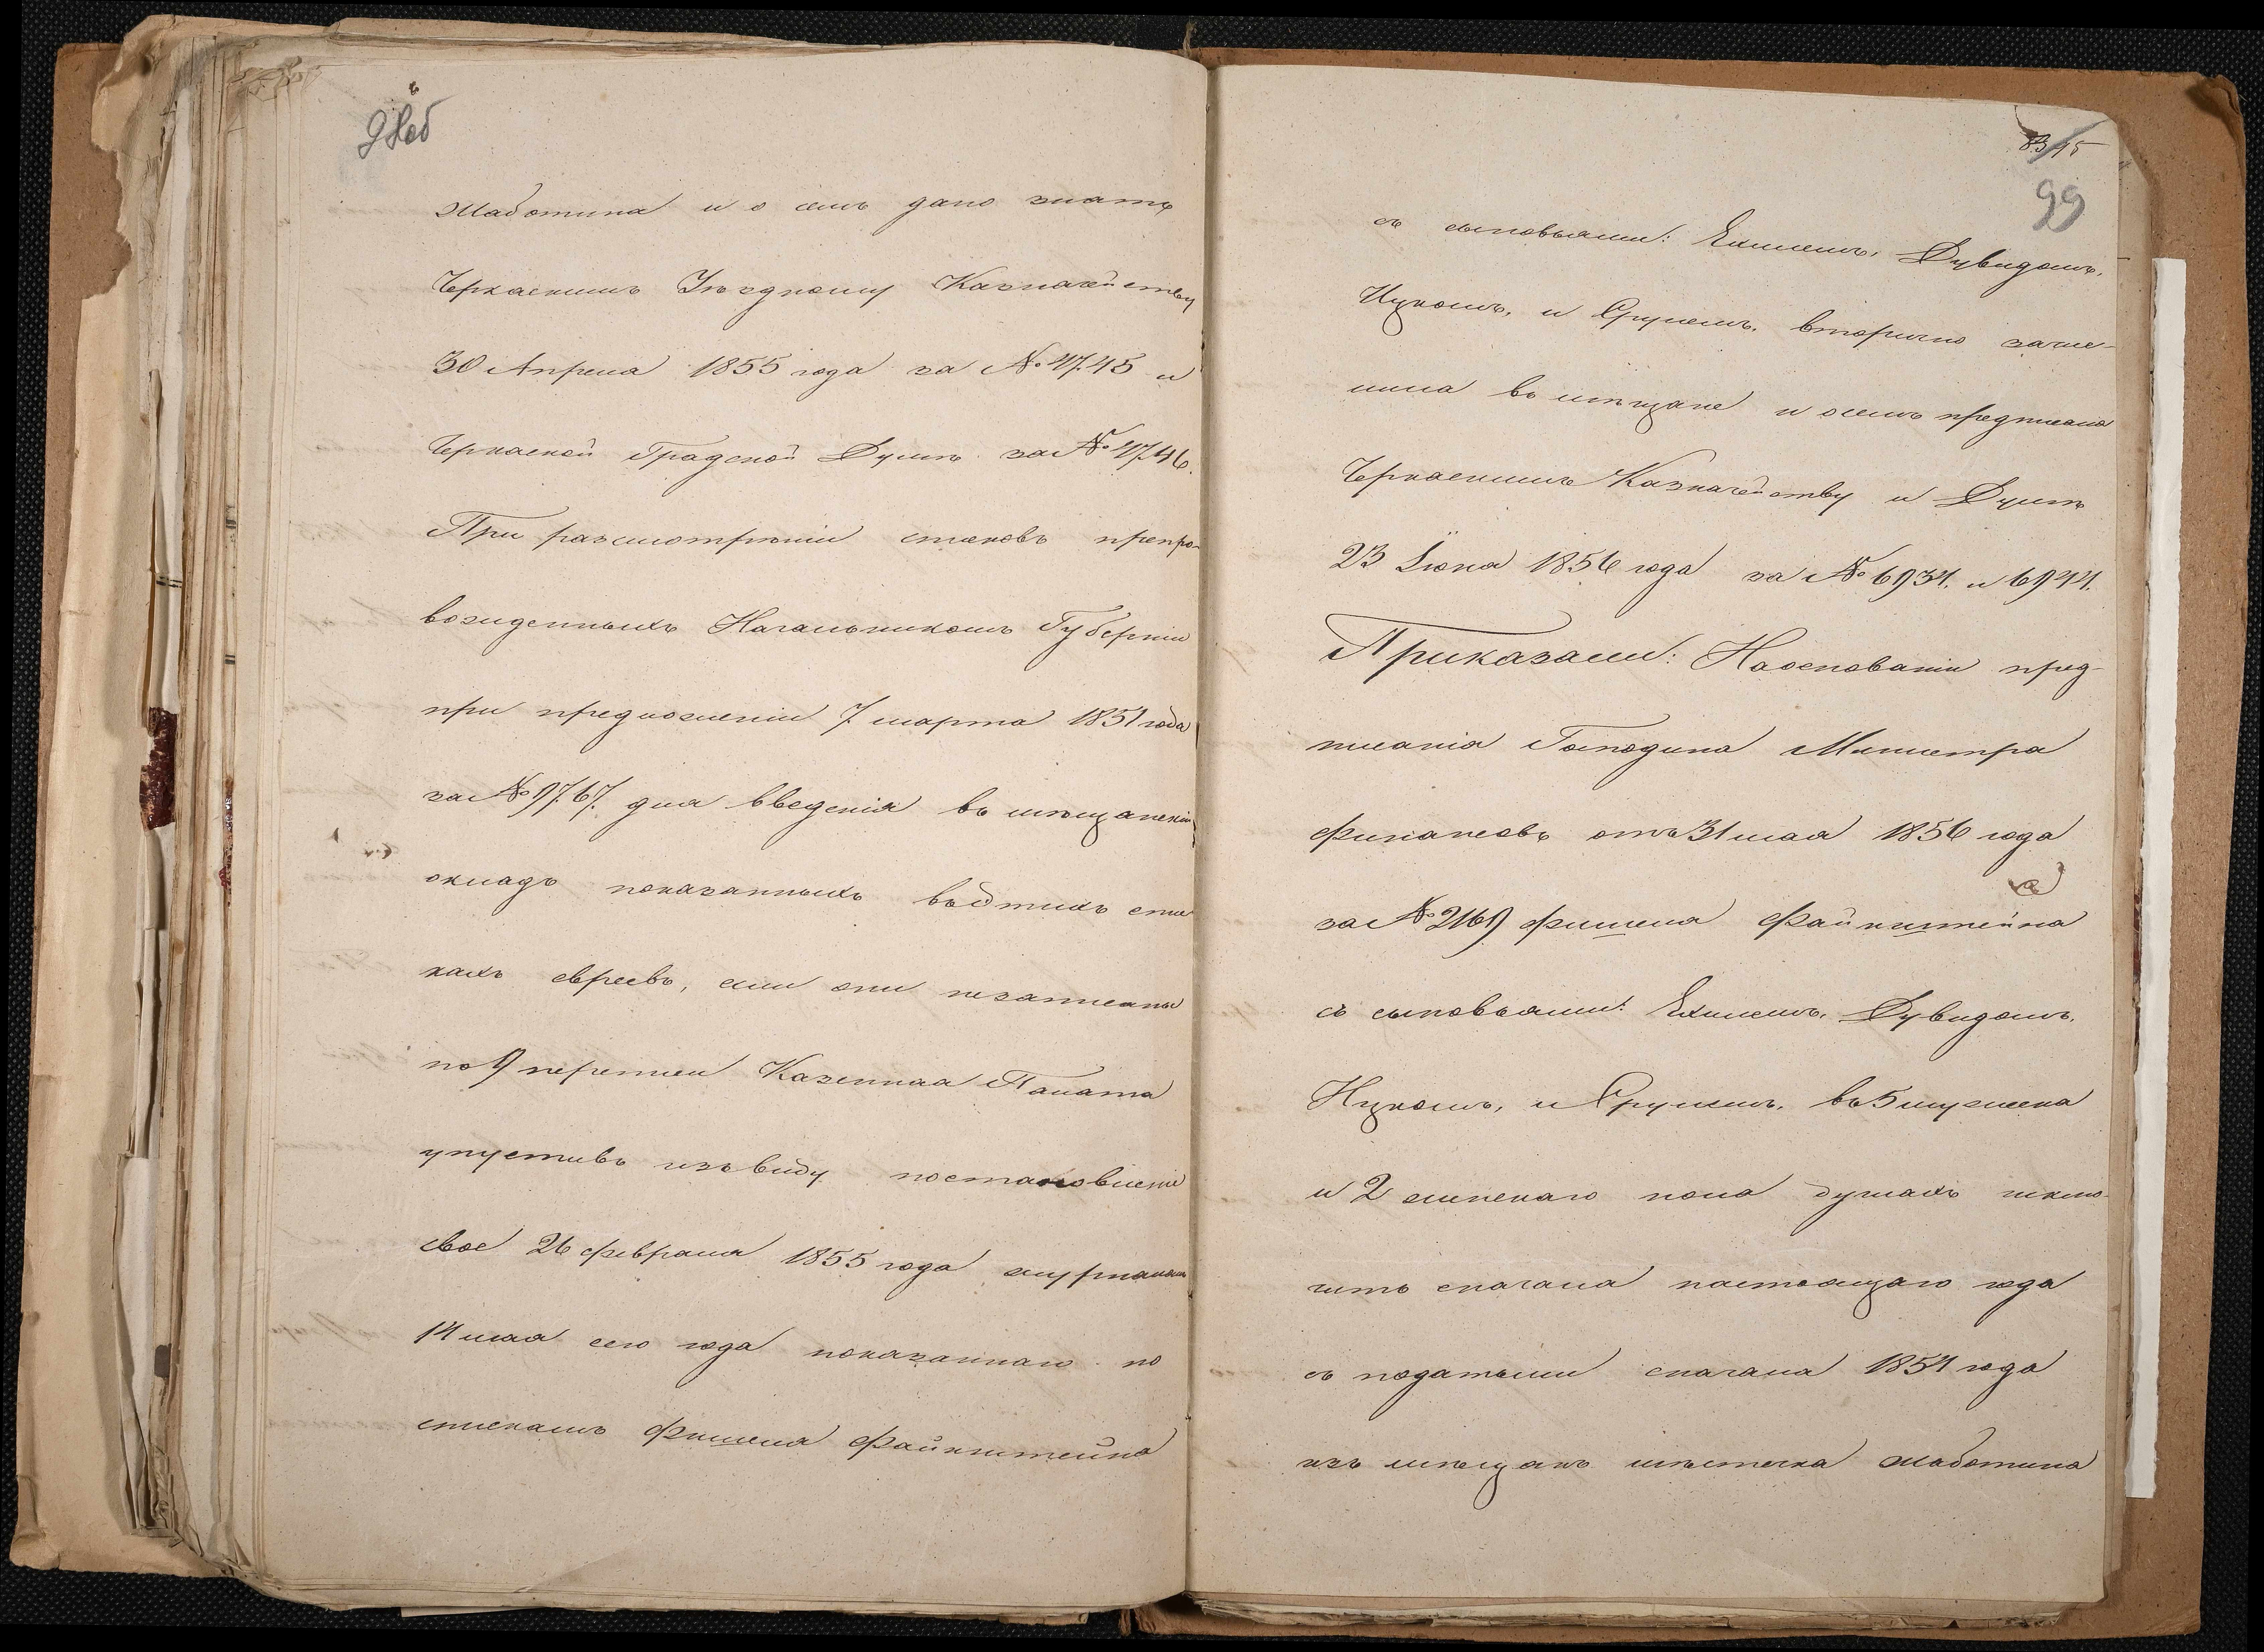 98об
Жаботина и о семъ дано знать
Черкаскимъ Уѣздному Казначейству
30 Апреля 1855 года за № 4745 и
Черкаской Градской Думѣ за № 4746.
При разсмотрѣніи списковъ препро-
вожденныхъ Начальникомъ Губерніи
при предложеніи 7 марта 1851 года
за № 9767. для введенія въ мѣщанскій
окладъ показанныхъ въ этихъ спи
скахъ евреевъ, если они незаписаны
по 9 переписи Казенная Палата
упустивъ изъ виду постановленіе
свое 26 февраля 1855 года журналомъ
14 мая сего года показаннаго по
спискамъ Фишеля Файнштейна
83/45
99
съ сыновьями: Ехилемъ, Дувидомъ,
Ицкомъ, и Срулемъ, вторично зачис-
лила въ мѣщане и о семъ предписано
Черкаскимъ Казначейству и Думѣ
23 Іюня 1856 года за № 6934. и 6944.
Приказали: На основаніи пред-
писанія Господина Министра
Финансовъ отъ 31 мая 1856 года
за № 2169 Фишеля Файнштейна
съ сыновьями: Ехилемъ, Дувидомъ,
Ицкомъ, и Срулемъ, въ 5 мужеска
и 2 женскаго пола душахъ исклю-
чить сначала настоящаго года
съ податьми сначала 1854 года
изъ мѣщанъ мѣстечка Жаботина